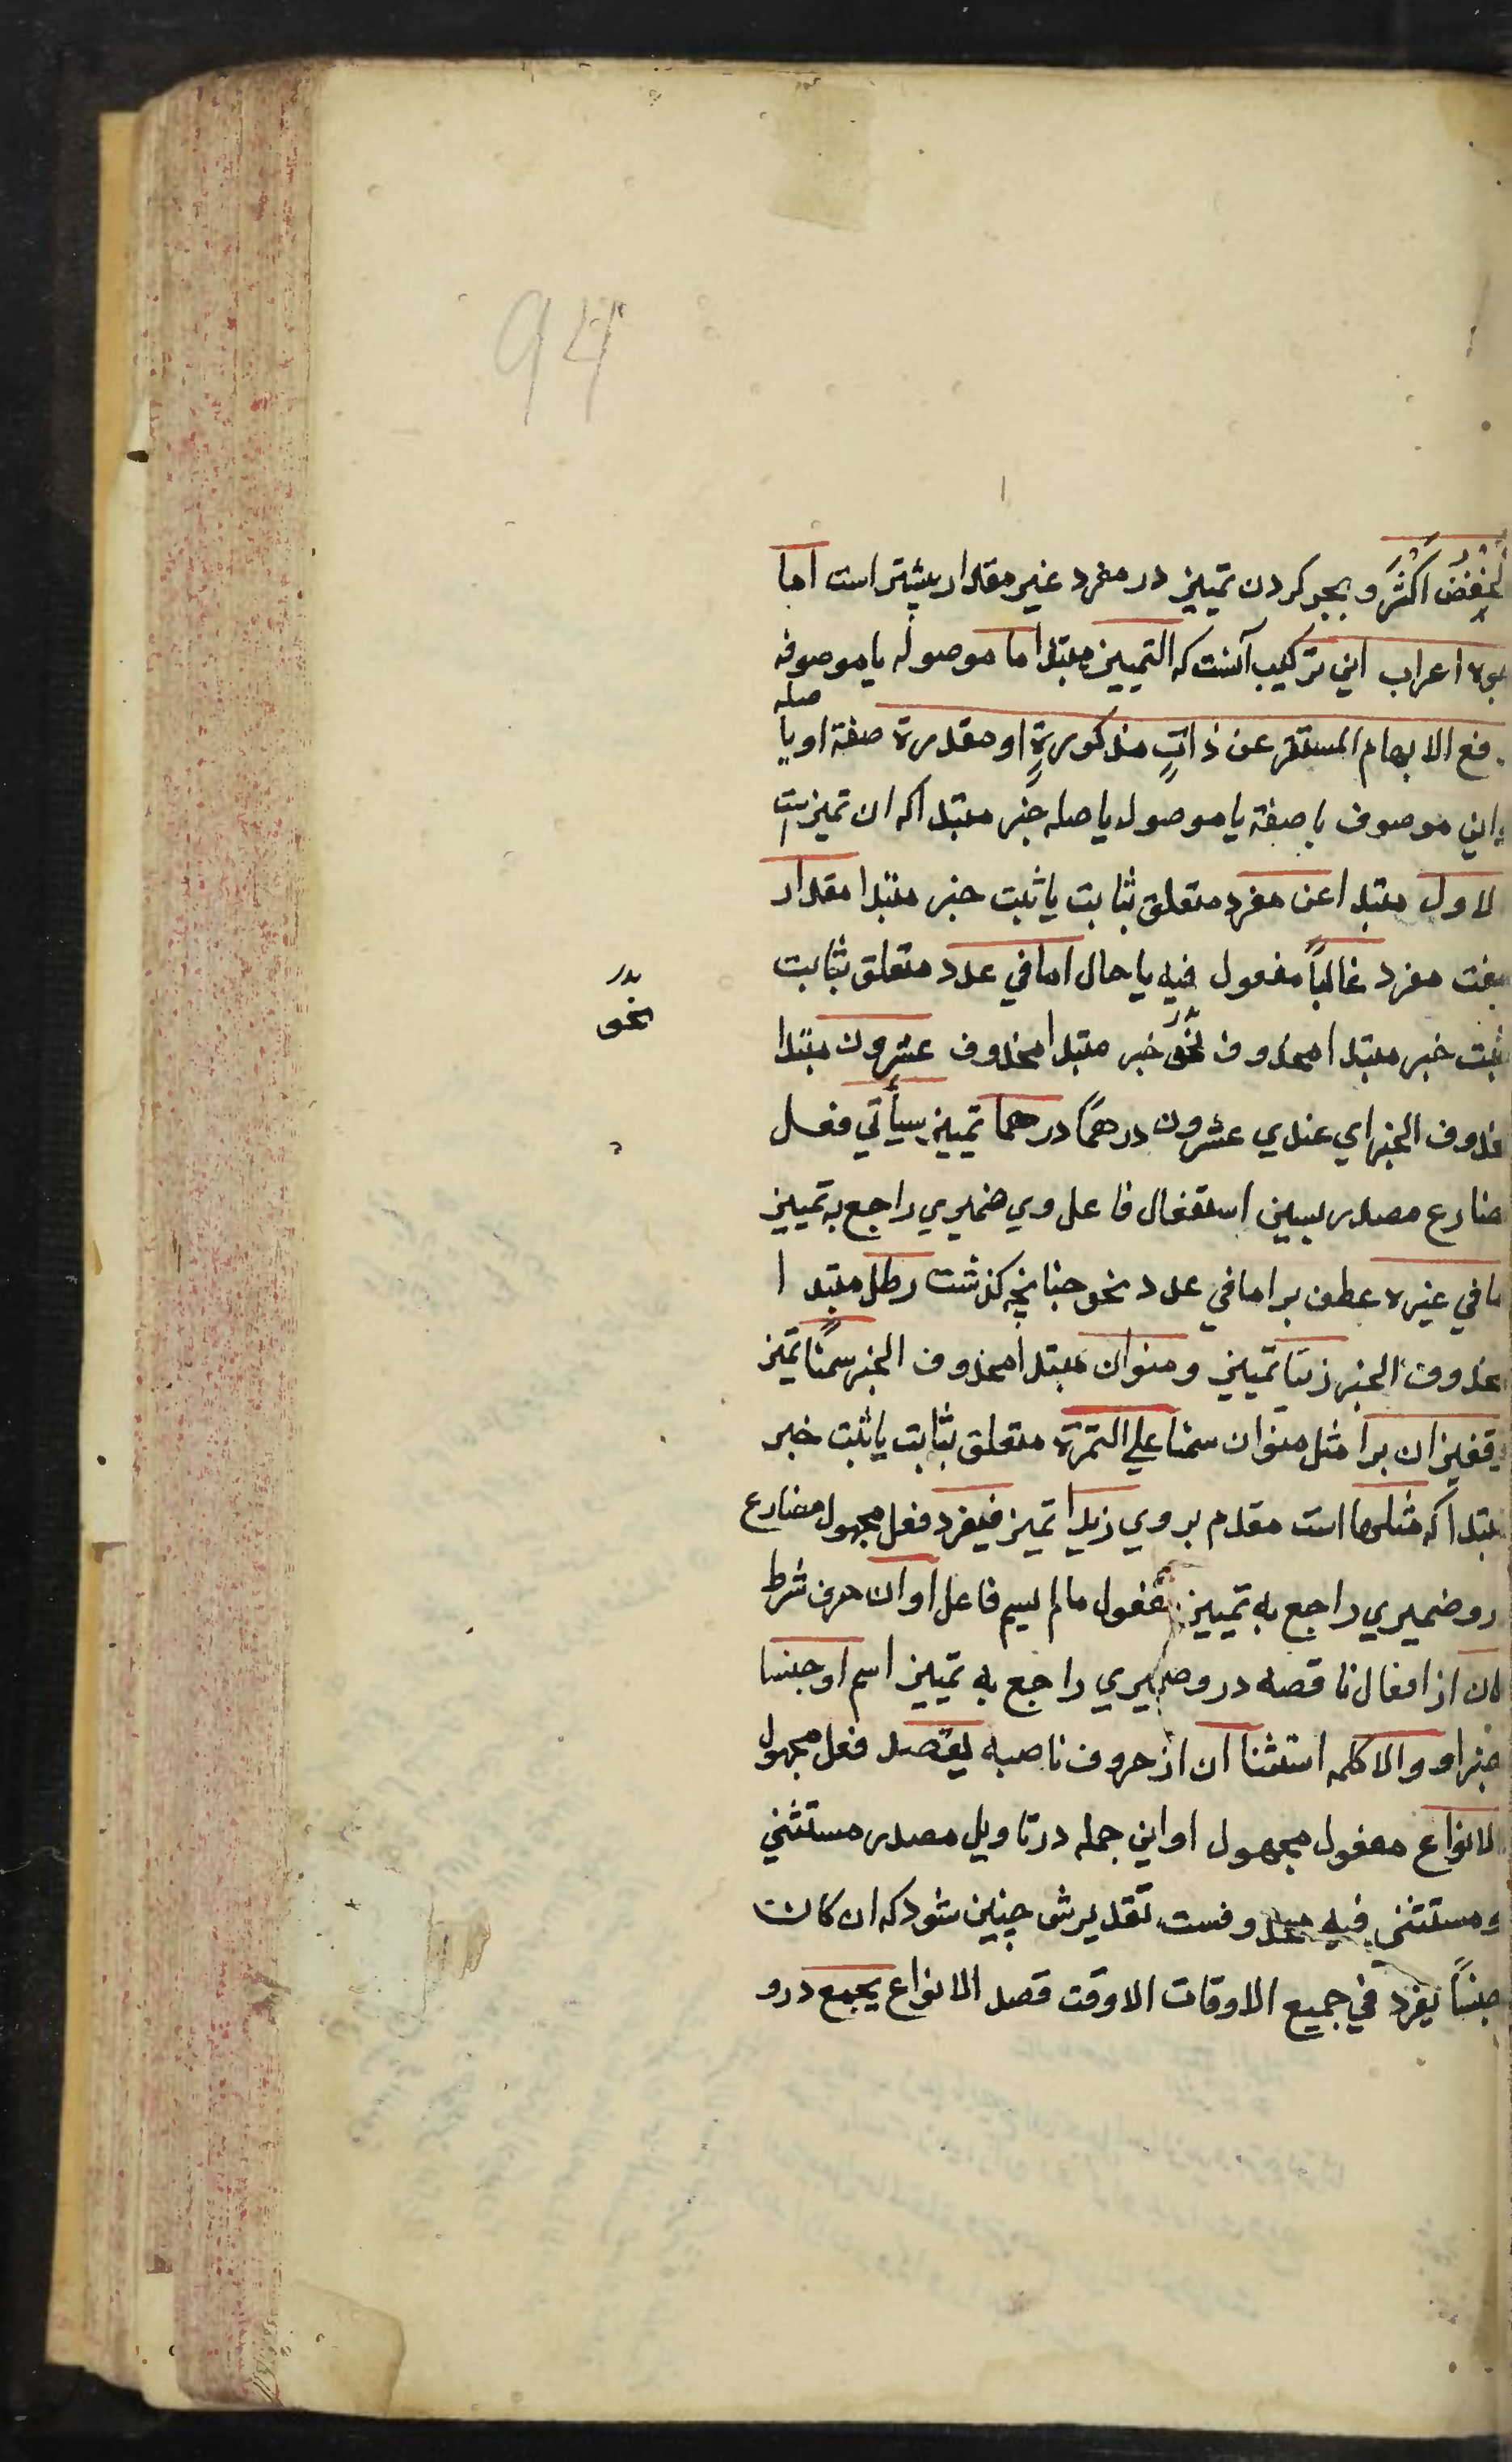 94
الخفض اكثر و بجر كردن تمييز در مفرد غير مقدار بيشتر است اما
اعراب اين تركيب آنست كه التمييز مبتدا ما موصوله يا موصوفه
صله
رفع الابهام المستقر عن ذاتٍ مذكورةٍ او مقدرة صفة او يا
اين موصوف با صفة يا موصول يا صله خبر مبتدا كه ان تميزست
الاول مبتدا عن مفرد متعلق بثابت يا ثبت خبر مبتدا مقدار
صفت مفرد غالباً مفعول فيه يا حال اما في عدد متعلق بثابت
بدر
نحو
ثبت خبر مبتدا محذوف نحو خبر مبتدا محذوف عشرون مبتدا
محذوف الخبر اي عندي عشرون درهمًا درهما تمييز سيأتي فعل
مضارع مصدر بسين استقبال فاعل وي ضميري راجع به تمييز
اما في غيره عطف بر اما في عدد نحو چنانچه كذشت رطل مبتدا
محذوف الخبر زيتا تمييز و منوان مبتدا محذوف الخبر سمنًا تميز
وقفيزان برا مثل منوان سمنا علي التمرة متعلق بثابت يا ثبت خبر
مبتدا كه مثلها است مقدم بر وي زبدا تميز فيفرد فعل مجهول مضارع
درو ضميري راجع به تمييز مفعول مالم يسم فاعل او ان حرف شرط
كان از افعال ناقصه درو ضميري راجع به تمييز اسم او جنسا
خبر او والا كلمه استثنا ان از حروف ناصبه يقصد فعل مجهول
الانواع مفعول مجهول او اين جمله در تاويل مصدر مستثني
و مستثني فيه محذوفست تقديرش چنين شود كه ان كان
جنسًا يفرد في جميع الاوقات الا وقت قصد الانواع يجمع درو